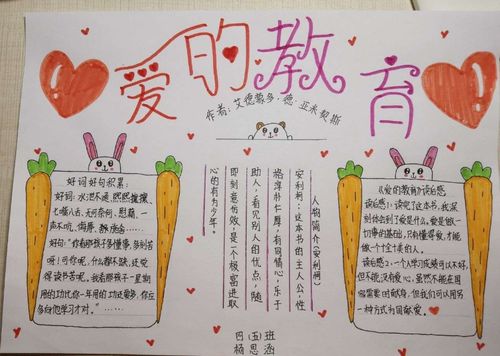 爱的教育
作者:艾德蒙多·德·亚米契斯
好词好句积累:
好词:水泄不通、熙熙攘攘、
七嘴八舌、无可奈何、慰藉、一
声不吭、侮辱、教唆……
好句:"你看那孩子多懂事,多刻苦
呀!可你呢,什么都不缺,还觉
得读书苦呢。我看那孩子一星期
用的功比你一年用的功还要多,你应
多向他学习才对。……
人物简介(安利柯)
安利柯:这本书的主人公,性
格淳朴仁厚,有同情心,乐于
助人,看见别人的优点,随
即刻意仿效,是一个极富进取
心的有为少年。
《爱的教育》读后感
读后感1:读吧了这本书,我深
刻体会到了爱是什么。爱是做一
切事的基础,只有懂得爱,才能
做一个十全十美的人。
读后感2:一个人学习成绩可以不好,
但不能没有爱心。虽然不能在国
需要时献身,但我们可以用另
一种方式为国献爱。
四(五)班
杨思涵